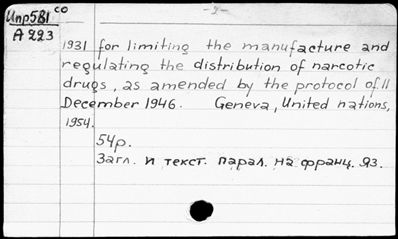 Unp5B1 CO
- 2 -
A 223
1931 for limiting the manufacture and
regulating the distribution of narcotic
drugs, as amended by the protocol of 11
December 1946. Geneva, United nations,
1954.
54p.
Загл. и текст. парал. на франц. яз.